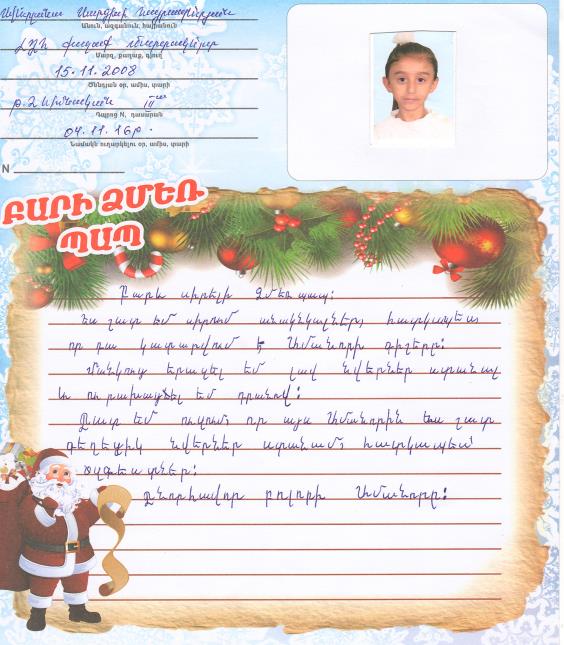 Անուն, ազգանուն, հայրանուն
ԼՂՀ քաղաք Ստեփանակերտ
Մարզ, քաղաք, գյուղ
15.11.2008
Ծննդյան օր, ամիս, տարի
թ. 2 հիմնական III
Դպրոց N, դասարան
04.11.16թ.
Նամակն ուղարկելու օր, ամիս, տարի
N
ԲԱՐԻ ՁՄԵՌ
ՊԱՊ
Բարև սիրելի Ձմեռ պապ։
Ես շատ եմ սիրում անակնկալներ, հատկապես
որ դա կատարվում է Ամանորի գիշերը։
Մանկուց երազել եմ լավ նվերներ ստանալ
և ուրախացել եմ դրանով։
Շատ եմ ուզում, որ այս Ամանորին ես շատ
գեղեցիկ նվերներ ստանամ, հատկապես՝
Շնորհավոր բոլորի Ամանորը։